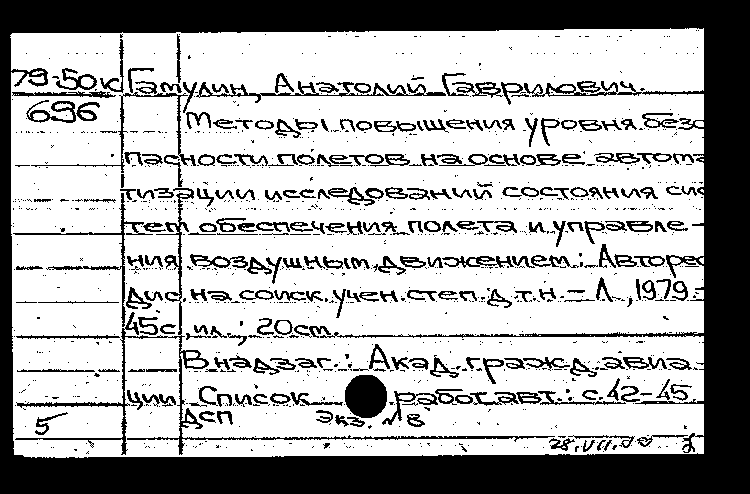 79-50к Гамулин, Анатолий Гаврилович.
696 Методы повышения уровня безо
пасности полетов на основе автома
тизации исследований состояния сис
тем обеспечения полета и управле-
ния воздушным движением: Авторес
дис. на соиск. учен. степ. д.т.н. - Л., 1979.-
45с., ил.; 20см.
В надзаг.: Акад. гражд. авиа-
ции. Список работ авт.: с.42-45.
ДСП экз. №
5